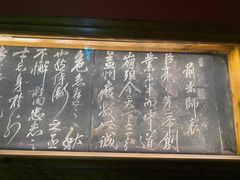 前出師表
臣亮言先帝創
業未半而中道
崩殂今天下三分
益州疲敝此誠
危急存亡之秋
也然侍衛之臣
不懈於內忠志之
士忘身於外